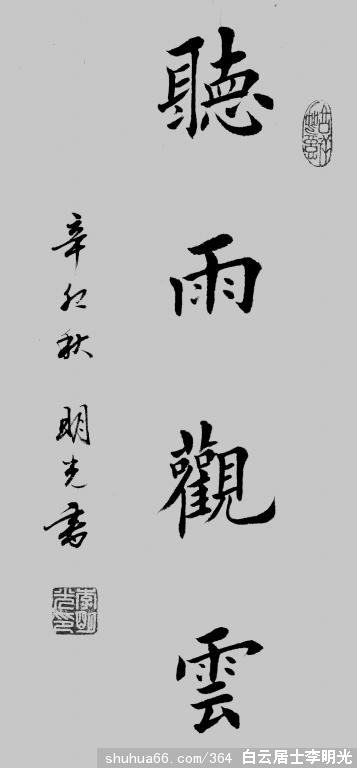 聽雨觀雲
辛卯秋 明光書
shuhua66.com/364 白云居士李明光